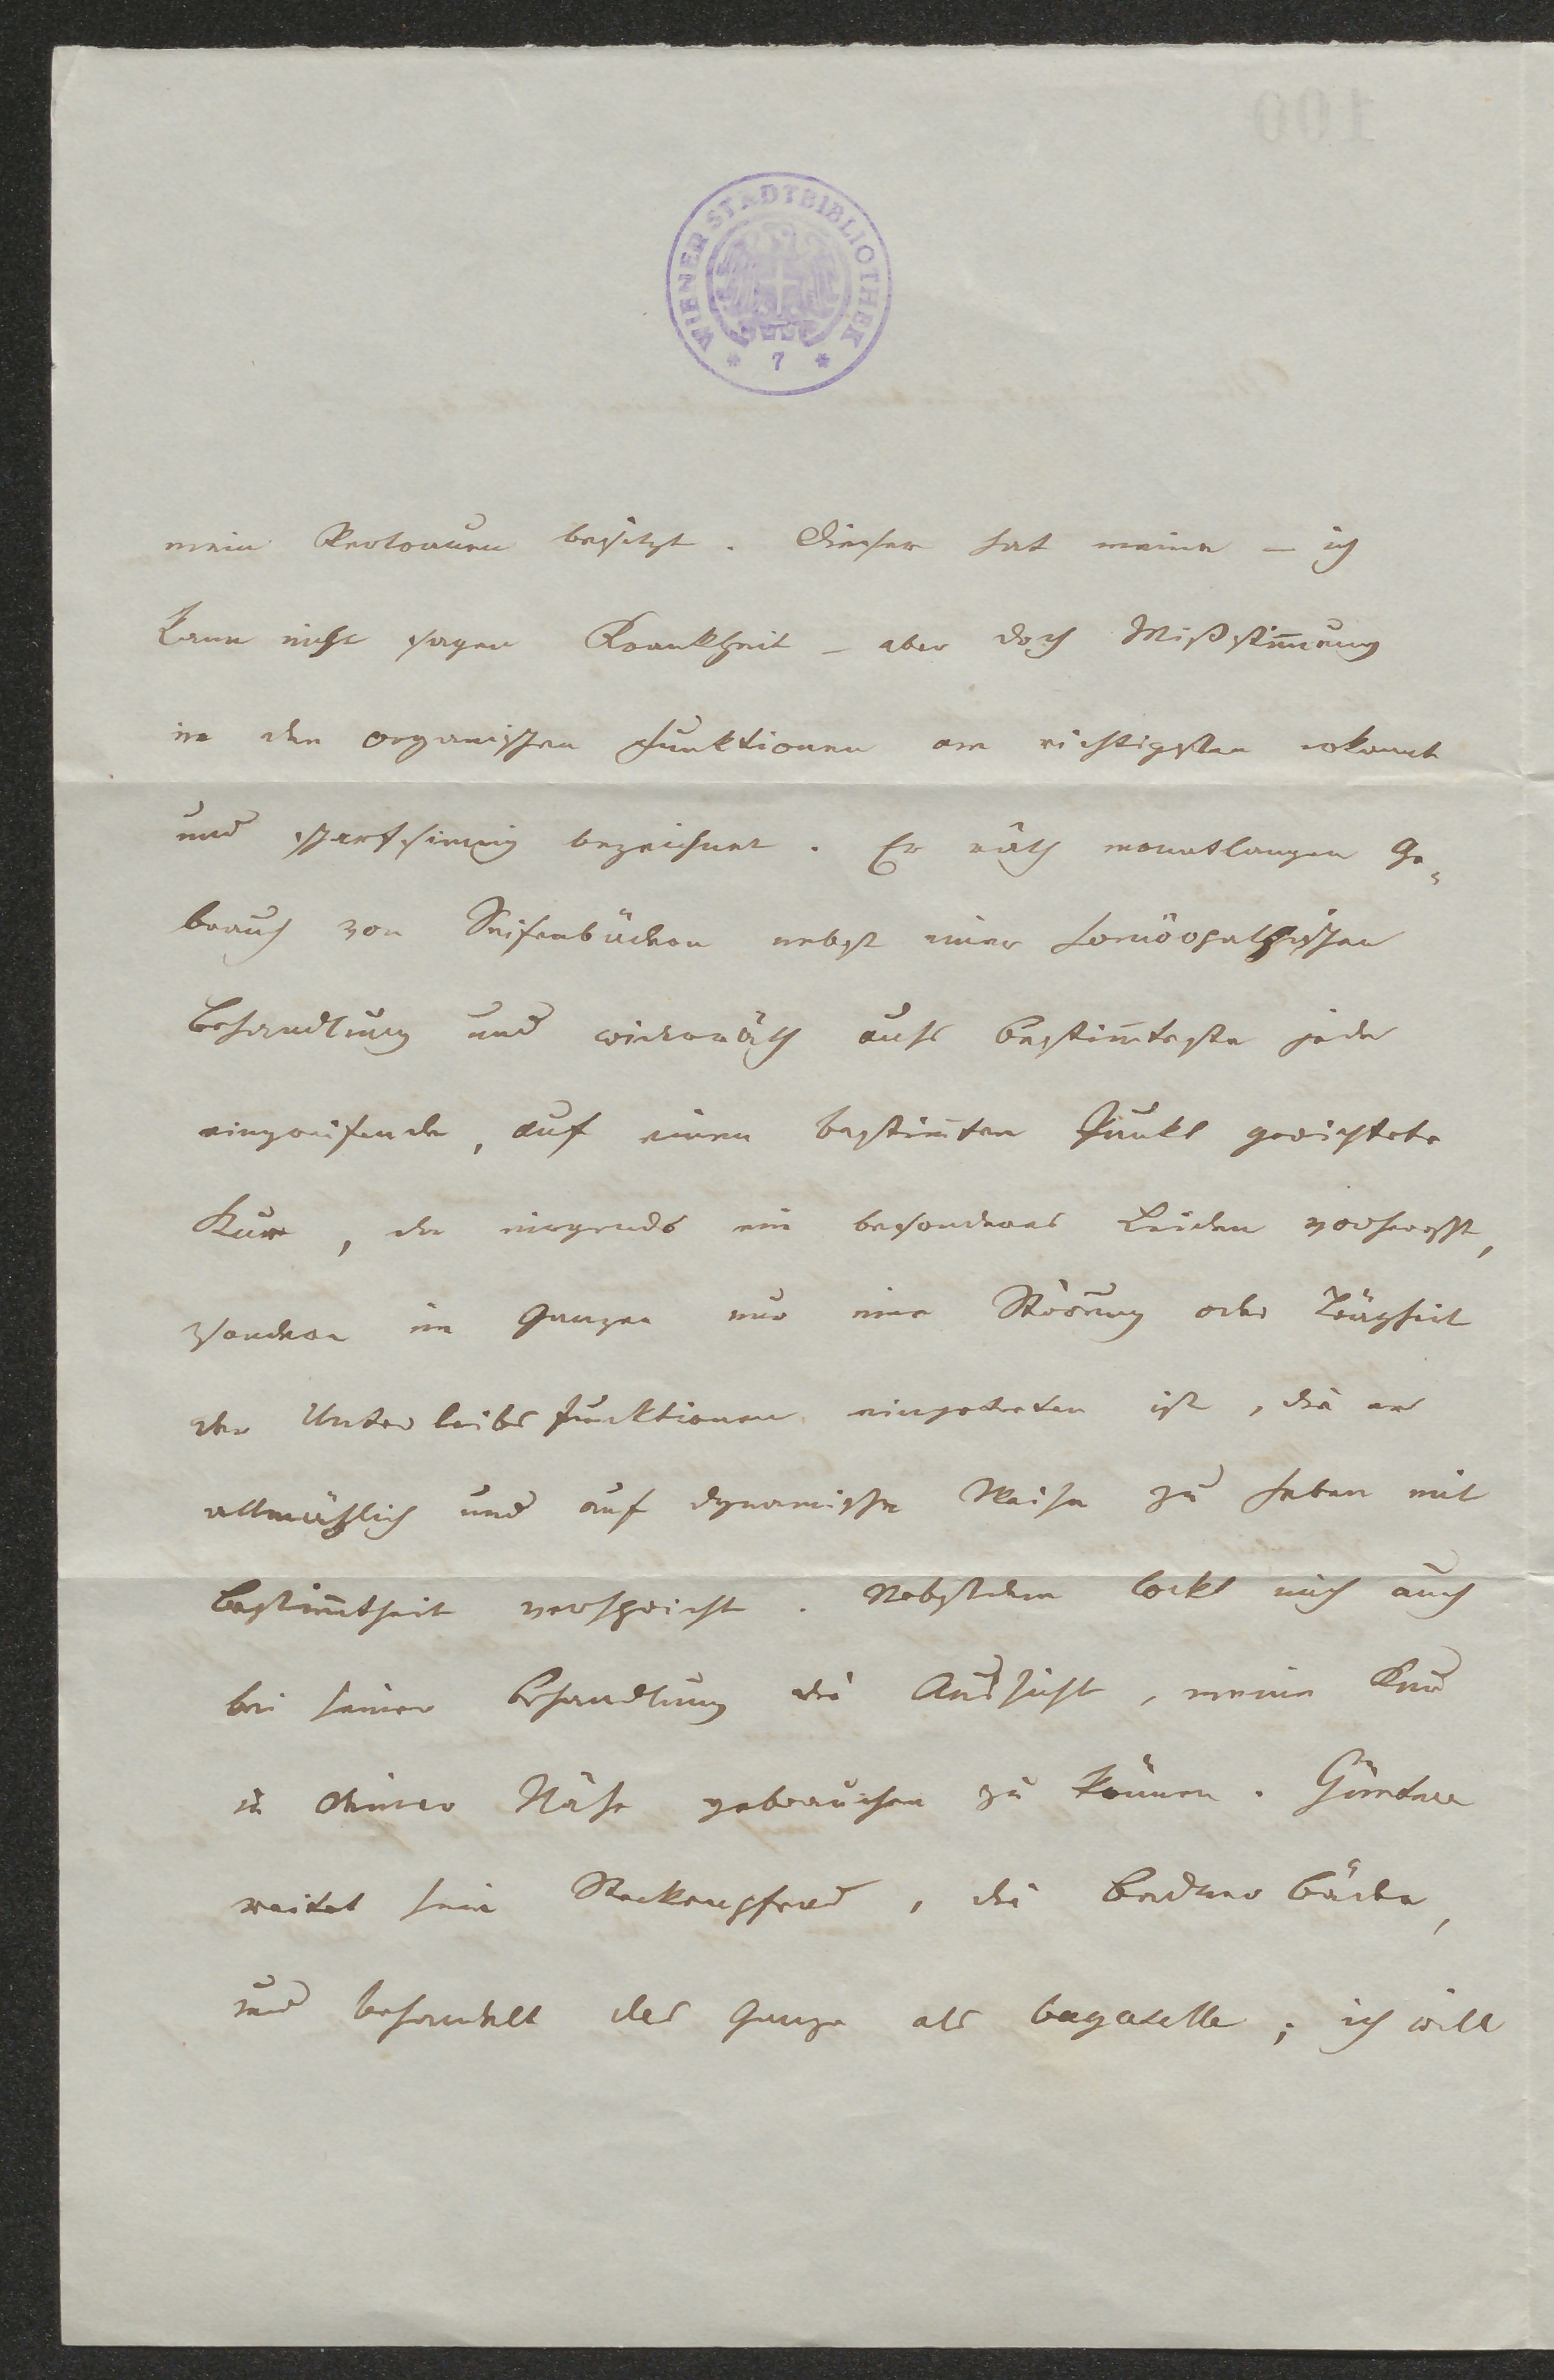 WIENER STADTBIBLIOTHEK
* 7 *
mein Vertrauen besitzt. Dieser hat meine – ich
kann nicht sagen Krankheit – aber doch Mißstim̄ung
in den organischen Funktionen am richtigsten erkannt
und scharfsinnig bezeichnet. Er räth monatlangen Ge=
brauch von Seifenbädern nebst einer homöopathischen
Behandlung und widerräth aufs bestim̄teste jede
eingreifende, auf einen bestim̄ten Punkt gerichtete
Kur, da nirgends ein besonderes Leiden vorherrscht,
sondern im Ganzen nur eine Störung oder Trägheit
der Unterleibsfunktionen eingetreten ist, die er
allmählich und auf dynamische Weise zu heben mit
Bestim̄theit verspricht. Nebstdem lockt mich auch
bei seiner Behandlung die Aussicht, meine Kur
in deiner Nähe gebrauchen zu können. Güntner
reitet sein Steckenpferd, die Badner Bäder,
und behandelt das Ganze als bagatelle; ich will